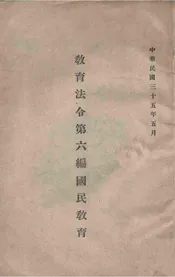 中華民國三十五年五月
教育法令第六編國民教育